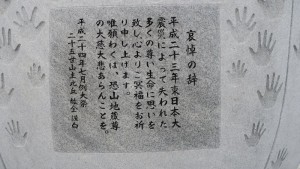 哀悼の辞
平成二十三年東日本大
震災によって失われた
多くの尊い生命に思いを
致し、心よりご冥福をお祈
り申し上げます。
唯願わくば、恐山地蔵尊
の大慈大悲あらんことを。
平成二十四年七月例大祭
二十五世山主